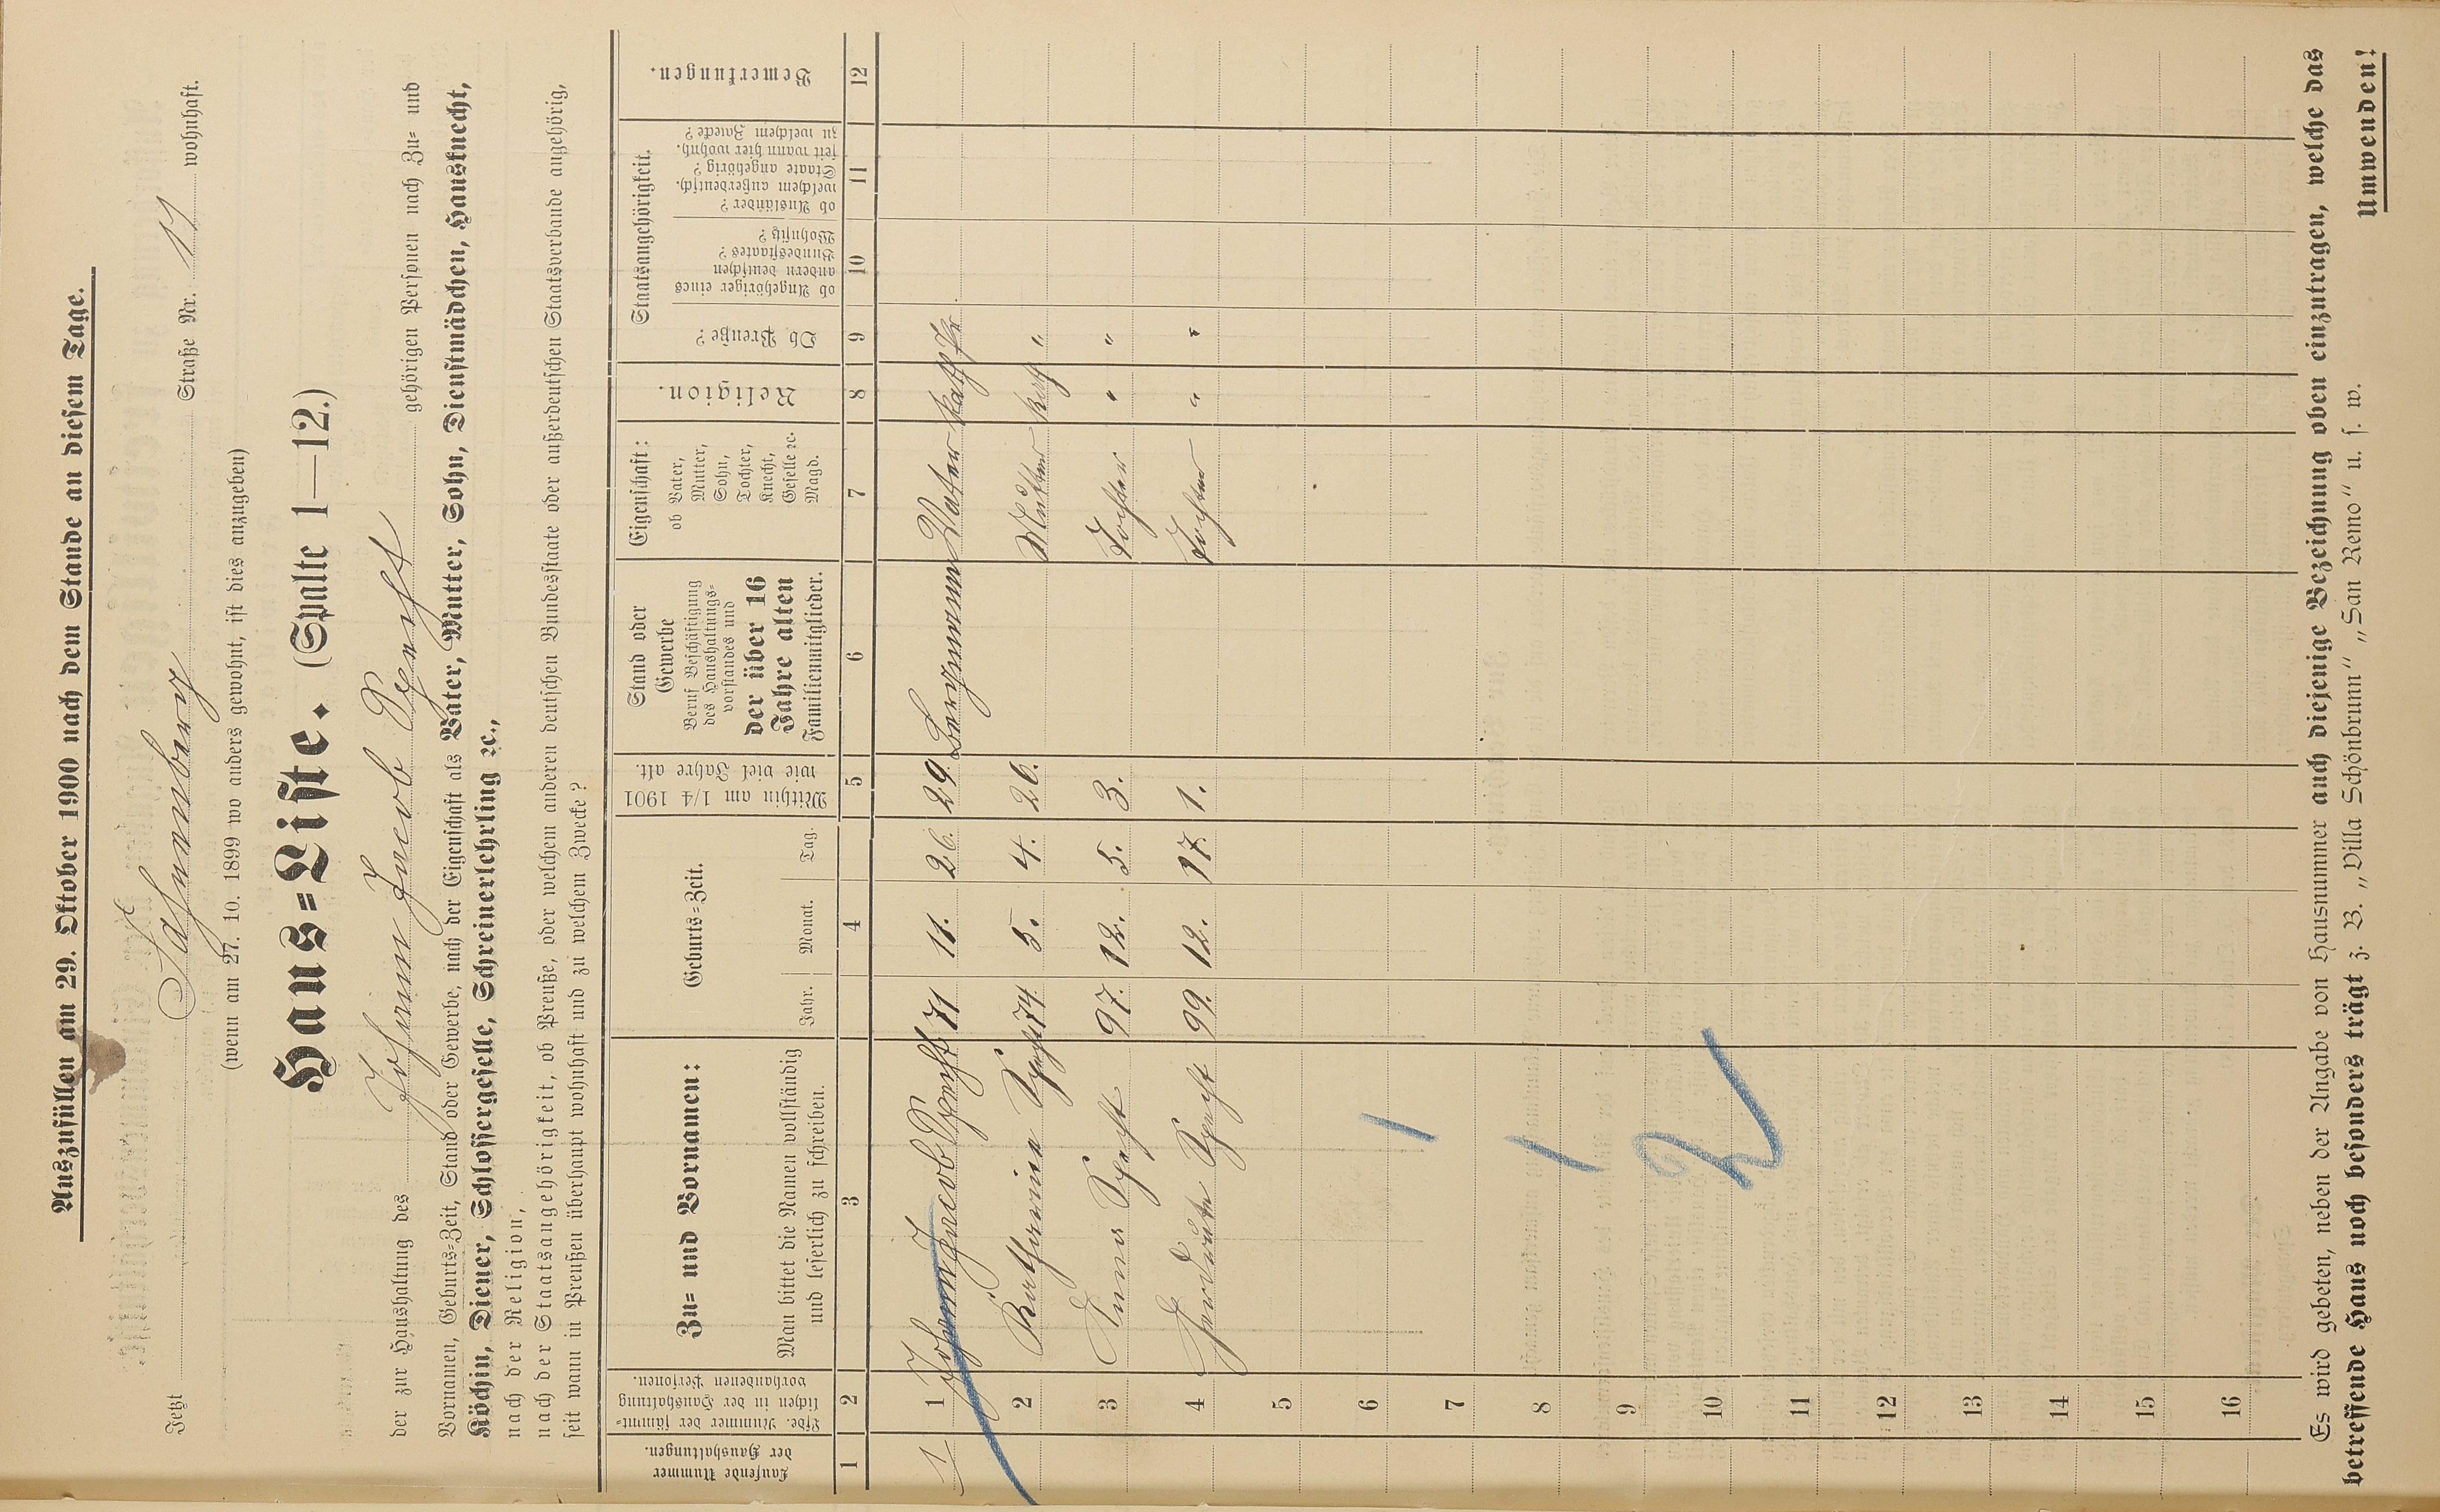 Auszufüllen am 29. Oktober 1900 nach dem Stande an diesem Tage.
Jetzt Hahnenberg Straße Nr. 11 wohnhaft.
(wenn am 27. 10. 1899 wo anders gewohnt, ist dies anzugeben)
Haus=Liste. (Spalte 1—12.)
der zur Haushaltung des Johann Jacob Specht gehörigen Personen nach Zu= und
Vornamen, Geburts=Zeit, Stand oder Gewerbe, nach der Eigenschaft als Vater, Mutter, Sohn, Dienstmädchen, Hausknecht,
Köchin, Diener, Schlossergeselle, Schreinerlehrling ꝛc.,
nach der Religion,
nach der Staatsangehörigkeit, ob Preuße, oder welchem anderen deutschen Bundesstaate oder außerdeutschen Staatsverbande angehörig,
seit wann in Preußen überhaupt wohnhaft und zu welchem Zwecke?
Laufende Nummer der Haushaltungen.
Lfde. Nummer der sämmt=lichen in der Haushaltung vorhandenen Personen.
Zu= und Vornamen:
Man bittet die Namen vollständig
und leserlich zu schreiben.
Geburts=Zeit.
Jahr. Monat. Tag.
Mithin am 1/4 1901
wie viel Jahre alt.
Stand oder
Gewerbe
Beruf Beschäftigung
des Haushaltungs=
vorstandes und
der über 16
Jahre alten
Familienmitglieder.
Eigenschaft:
ob Vater,
Mutter,
Sohn,
Tochter,
Knecht,
Geselle ꝛc.
Magd.
Religion.
Staatsangehörigkeit.
Ob Preuße?
ob Angehöriger eines
andern deutschen
Bundesstaates?
Wohnsitz?
ob Ausländer?
welchem außerdeutsch.
Staate angehörig?
seit wann hier wohnh.
zu welchem Zwecke?
Bemerkungen.
1 2 3 4 5 6 7 8 9 10 11 12
1 1 Johann Jacob Specht 71 11. 26. 29. Bergmann Vater kath Pr
2 Katharina Specht 74 5. 4. 26. Mutter kath "
3 Anna Specht 97. 12. 5. 3. Tochter " "
4 Specht 99. 12. 17. 1. Tochter " "
5
6
7
8
9
10
11
12
13
14
15
16
1
1
2
Es wird gebeten, neben der Angabe von Hausnummer auch diejenige Bezeichnung oben einzutragen, welche das
betreffende Haus noch besonders trägt z. B. „Villa Schönbrunn" „San Remo" u. s. w.
Umwenden!